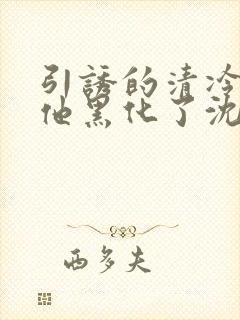 引誘的清冷
他黑化了沈
西多夫